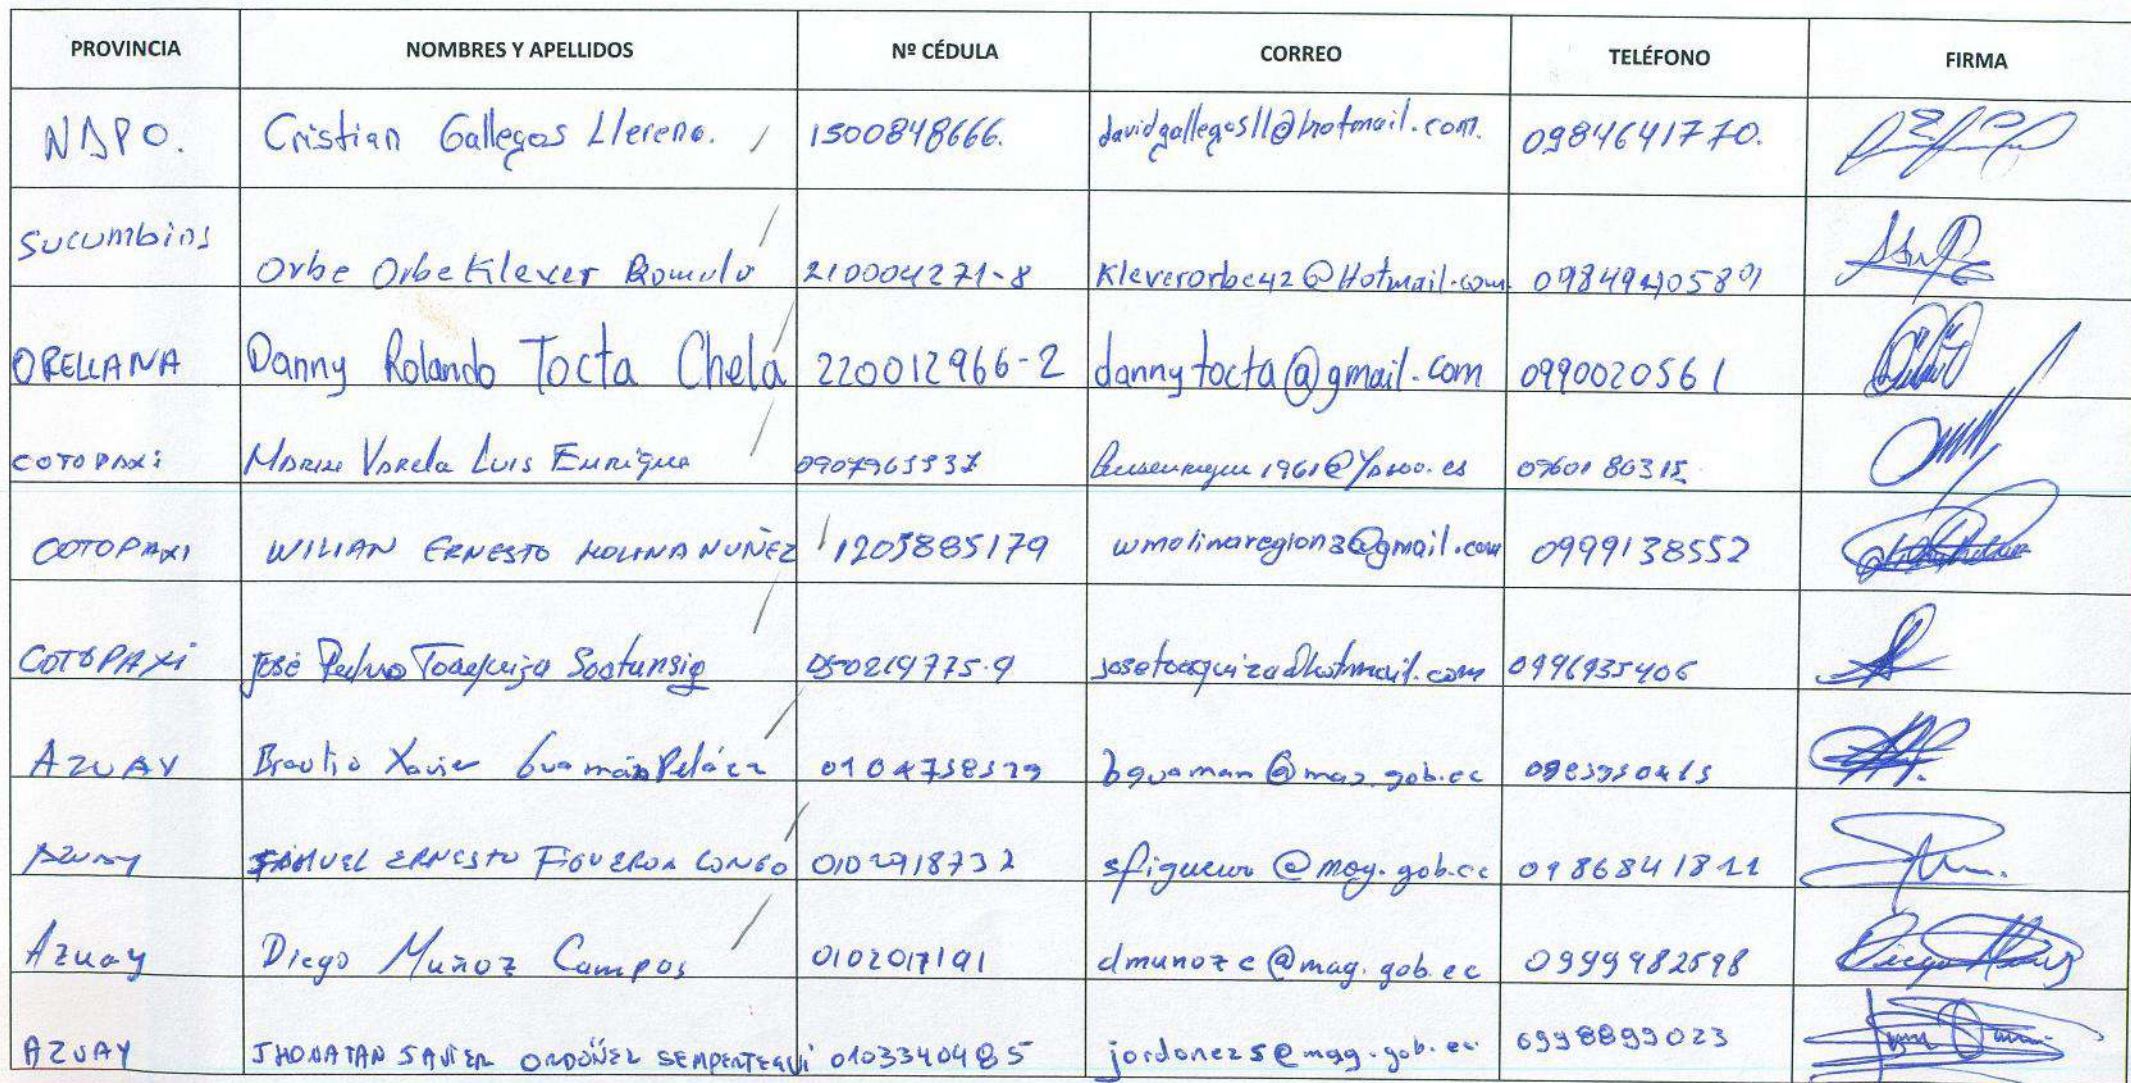 PROVINCIA NOMBRES Y APELLIDOS Nº CÉDULA CORREO TELÉFONO FIRMA
NAPO. Cristian Gallegos Llerena. 1500848666. davidgallegosll@hotmail.com. 0984641770.
Sucumbios Orbe Orbe Klever Romulo 210004271-8 Kleverorbe42@Hotmail.com
ORELLANA Danny Rolando Tocta Chela 220012966-2 dannytocta@gmail.com 0990020561
COTOPAXI Marin Varela Luis Enrique 0960180315
COTOPAXI WILIAN ERNESTO MOLINA NUÑEZ 1205885179 wmolinaregion3@gmail.com 0999138552
COTOPAXI José Pedro Toaquiza 050219775-9 josetoaquiza@hotmail.com 0996935406
AZUAY Braulio Xavier Guamán Peláez bguaman@mag.gob.ec
Azuay SAMUEL ERNESTO FIGUEROA CONGO 0102918732 @mag.gob.ec 0986841822
Azuay Diego Muñoz Campos 0102017191 dmunozc@mag.gob.ec 0999982598
AZUAY JHONATAN SAVIER ORDOÑEZ SEMPERTEGUI 0103340485 jordonezs@mag.gob.ec 0998899023